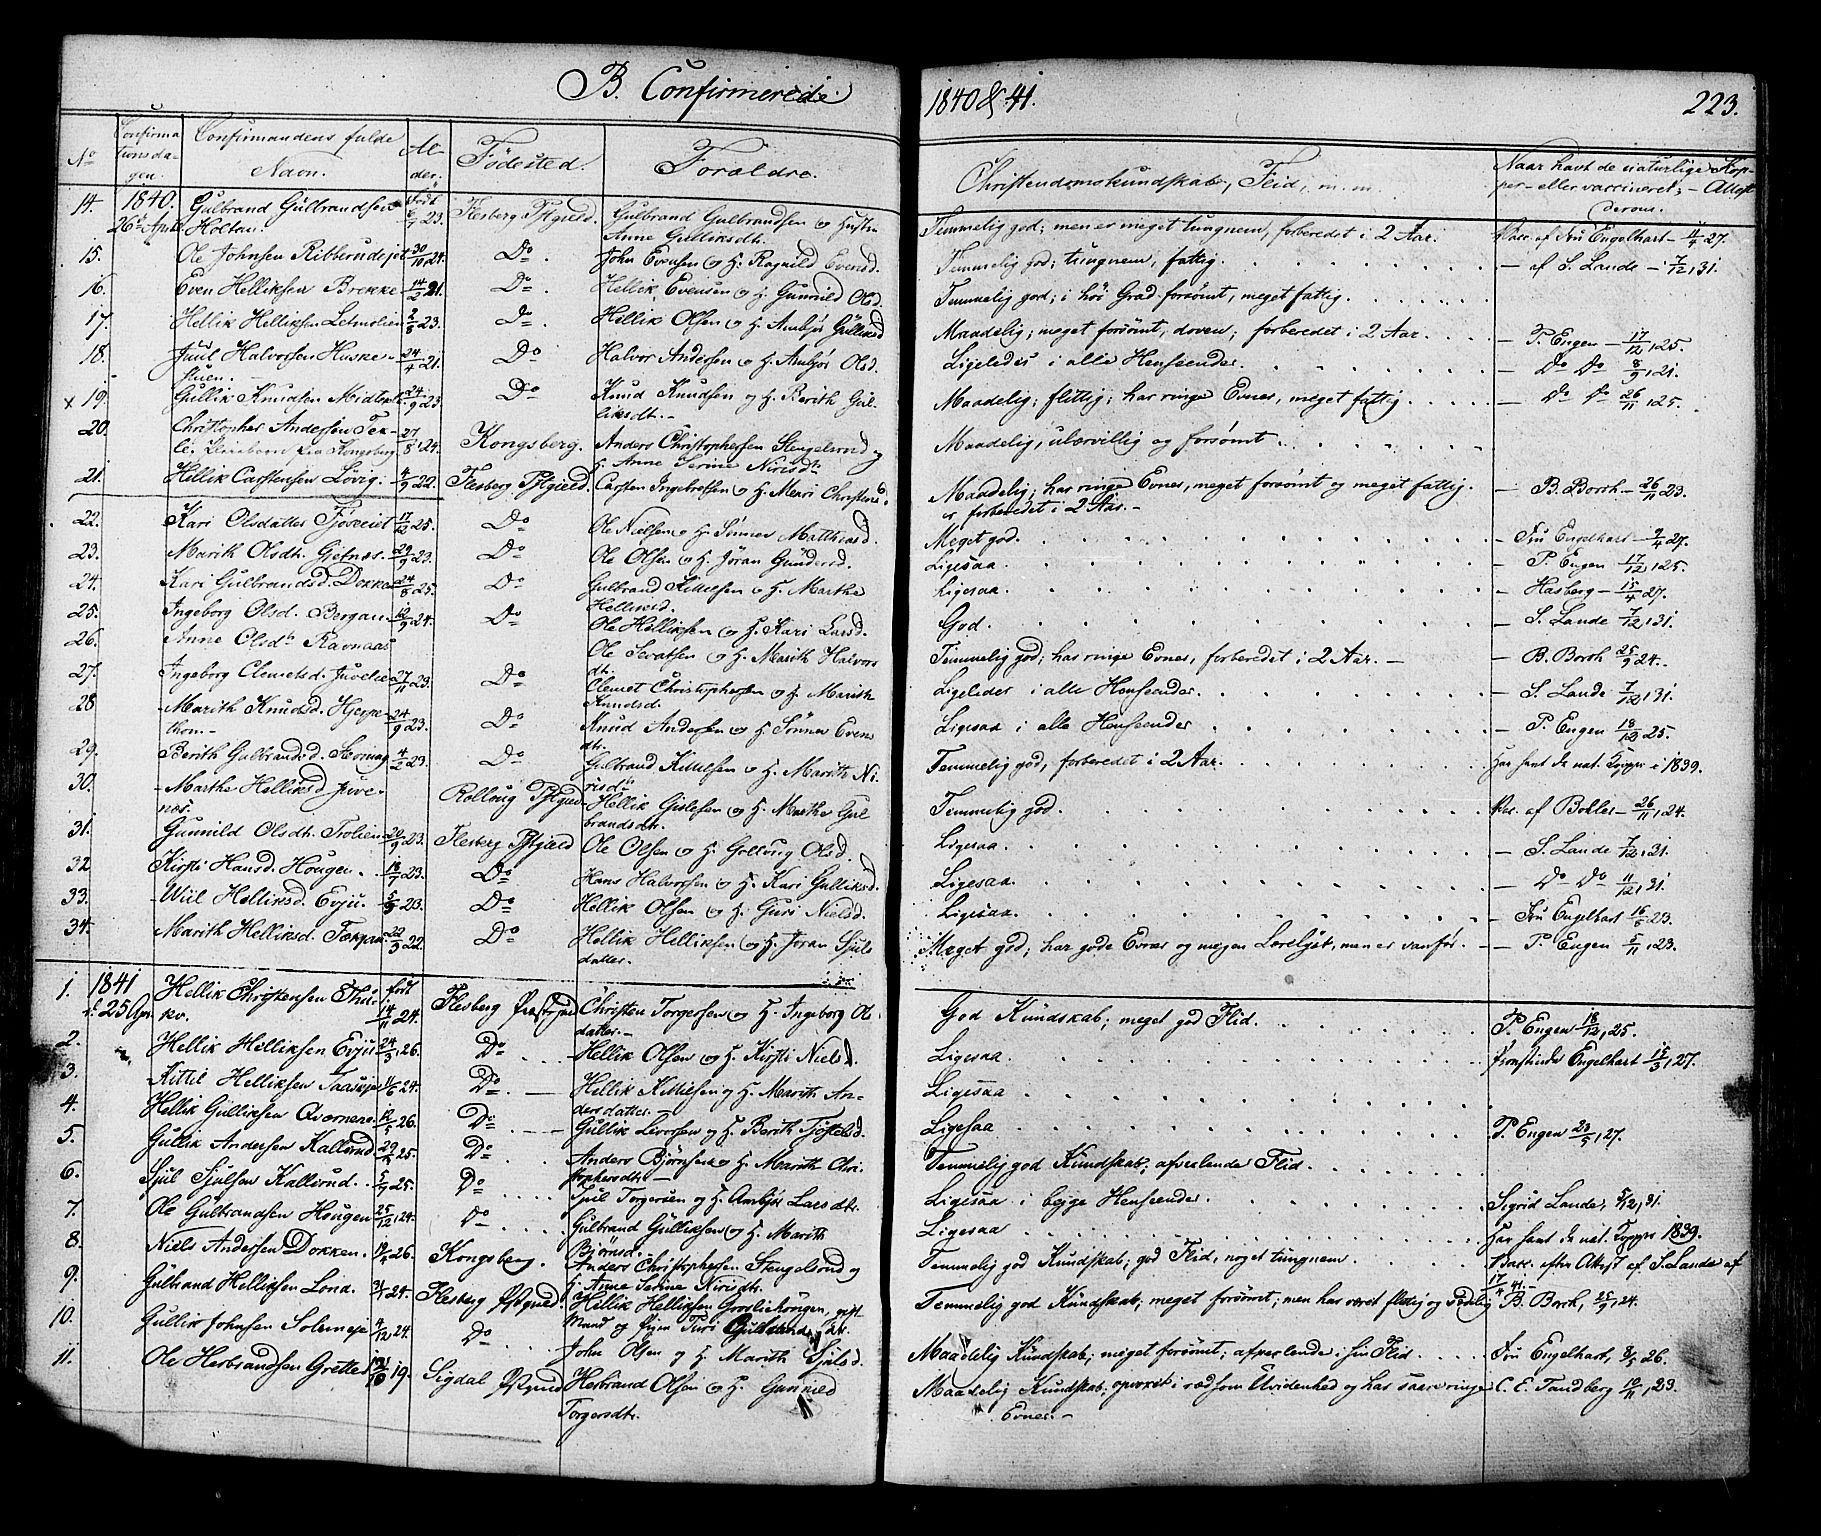 B. Confirmerede 1840 & 41. 223.
No Confirmationsdagen. Confirmandens fulde Navn. Alder. Fødested. Forældre. Christendomskundskab, Flid, m. m. Naar havt de naturlige Kopper eller vaccineret; Attest derom.
14. 1840. 26de April Gulbrand Gulbrandsen Holtan. født 6/7 23. Flesberg Pstgield. Gulbrand Gulbrandsen og Hustru Anne Gulliksdtr. Temmelig god; men er meget tungnem, forberedet i 2 Aar. Vacc. af Fru Engelhart 11/9 27.
15. Ole Johnsen 30/10 24. Do John Evensen og H. Ragnild Evensd. Temmelig god; tungnem, fattig. — af S. Lande — 7/12 31.
16. Even Helliksen Brekke 14/2 21. Do Hellik Evensen og H. Gunnild Olsd. Temmelig god; i høi Grad forsømt, meget fattig.
17. Hellik Helliksen Letmolien 2/8 23. Do Hellik Olsen og H. Ambjør Gullixsd Maadelig; meget forsømt, doven; forberedet i 2 Aar. — P. Engen — 17/12 25.
18. Juul Halvorsen 24/4 21. Do Halvor Andersen og H. Ambjør Olsd. Ligeledes i alle Henseender. — Do Do 8/9 21.
x 19. Gullik Knudsen 24/9 23 Do Knud Knudsen og H. Berith Gulliksdt. — Maadelig; flittig; har ringe Evner, meget fattig — Do Do 26/11 25.
20. Christopher Andersen fra Kongsberg 27/8 24. Kongsberg. Anders Christophersen Stengelsrud og H. Anne Serine Nirisdtr Maadelig, ulærvillig og forsømt
21. Hellik Carstensen Løvig. 4/9 22. Flesberg Pstgield. Carsten Ingebretsen og H. Mari Christensd. Maadelig; har ringe Evner, meget forsømt og meget fattig. forberedet i 2 Aar. — — B. Borch — 26/11 23.
22. Kari Olsdatter 17/12 25. Do Ole Nielsen og H. Sønnev Matthiasd. Meget god. — Fru Engelhart — 9/4 27.
23. Marith Olsdt. Gjetnæs. 29/9 23. Do Ole Olsen og H. Jøran Gundersd. Ligesaa. — P. Engen 17/12 25.
24. Kari Gulbrandsd. Dokken 24/8 25. Do Gulbrand Kittelsen og H. Marthe Helliksd. Ligesaa. — Hasberg — 15/4 27.
25. Ingeborg Olsd. Bergan 12/9 24. Do Ole Helliksen og H. Kari Larsd. God. — S. Lande 7/12 31.
26. Anne Olsdtr Ravnaas Ole Sevatsen og H. Marith Halvorsdt. Temmelig god; har ringe Evner, forberedet i 2 Aar. — — B. Borch 25/9 24.
27. Ingeborg Clemetsd. Juvelie 27/11 23. Do Clemet Christophersen og H. Marith Knudsd. Ligeledes i alle Henseender. — S. Lande 7/12 31.
28 Marith Knudsd. 24/9 23. Do Knud Andersen og H. Sønnev Evensdt. Ligesaa i alle Henseender — P. Engen 18/12 25.
29. Berith Gulbrandsd. 4/2 23. Do Gulbrand Kittelsen og H. Marith Nirisdtr Temmelig god, forberedet i 2 Aar. Har havt de nat. Kopper i 1839.
30. Marthe Helliksd Rolloug Pstgield Hellik Gislesen og H. Marthe Gulbrandsdt. Temmelig god. Vac. af Bolles — 26/11 24.
31. Gunnild Olsdt. Trolien 20/9 23. Flesberg Pstgield Ole Olsen og H. Gollaug Olsd. Ligesaa — S. Lande 7/12 31.
32 Kirsti Hansd. Hougen. 18/7 23. Do Hans Halvorsen og H. Kari Gulliksd. Ligesaa. — Do Do 11/12 31.
33. Wiil Helliksd. Evju. 5/9 23. Do Hellik Olsen og H. Guri Nielsd. Ligesaa. — Fru Engelhart 16/5 23.
34. Marith Helliksd. 22/3 22. Do Hellik Helliksen og H. Jøran Sjulsdatter. Meget god; har gode Evner og megen Lærelyst, men er vanfør. — P. Engen 5/11 23.
1. 1841 d. 25 Apr. Hellik Christensen født 14/11 24. Flesberg Præstgjeld Christen Torgersen og H. Ingeborg Olsdatter. — God Kundskab; meget god Flid. P. Engen 18/12 25.
2. Hellik Helliksen Evju 24/3 26. Do Hellik Olsen og H. Kirsti Nielsd. Ligesaa. Engelhart 15/3 27.
3. Kittil Helliksen 11/6 24. Do Hellik Kittilsen og H. Marith Andersdatter. — Ligesaa
4. Hellik Gulliksen Qvernene 12/5 26. Do Gullik Levorsen og H. Berith Tjøstelsd. Ligesaa P. Engen 23/5 27.
5. Gullik Andersen Kallerud 29/9 25. Do Anders Bjørnsen og H. Marith Christophersdt. — Temmelig god Kundskab; afvexlende Flid.
6. Sjul Sjulsen Kallerud. 5/9 25. Do Sjul Torgersen og H. Ambjør Larsdt. Ligesaa i begge Henseender. Sigrid Lande, 5/12 31.
7. Ole Gulbrandsen Hougen 25/12 24. Do Gulbrand Gulliksen og H. Marith Bjørnsd. Ligesaa Har havt de nat. Kopper 1839.
8. Niels Andersen Dokken. 19/4 26. Kongsberg. Anders Christophersen Stengelsrud og H. Anne Serine Nirisdt. Temmelig god Kundskab; god Flid, noget tungnem. Vacc. efter Attest af S. Lande af 17/4 41. —
9. Gulbrand Helliksen Lond. 3/1 24. Flesberg Pstgjeld Hellik Helliksen gift Mand og Pigen Turi Temmelig god Kundskab; meget forsømt; men har været flittig og sædelig B. Borch, 25/9 24.
10. Gullik Johnsen 4/12 24. Do John Olsen og H. Marith Sjulsd. Maadelig Kundskab; meget forsømt; afvexlende i sin Flid. Fru Engelhart, 3/5 26.
11. Ole Herbrandsen 19. Sigdal Pstgjeld Herbrand Olsen og H. Gunnild Torgersdt. Maadelig Kundskab, opvoxet i rædsom Uvidenhed og har saare ringe Evner. — C. E. Tandberg 10/11 23.